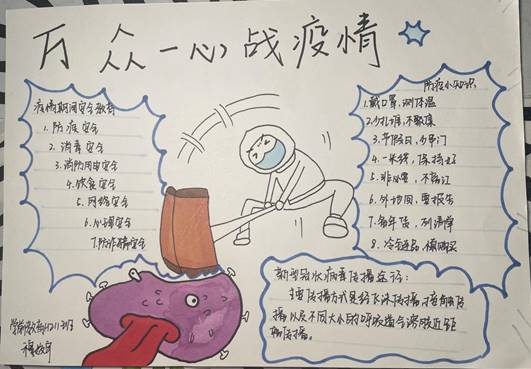 万众一心战疫情
疫情期间安全教育
1. 防疫安全
2. 消毒安全
3. 消防用电安全
4. 饮食安全
5. 网络安全
6. 心理安全
7. 防诈骗安全
防疫小知识
1. 戴口罩,测体温
2. 少扎堆,不聚集
3. 节假日,少串门
4. 一米线,保持好
5. 非必要,不离江
6. 外地回,要报告
7. 备年货,列清单
8. 冷冻品,慎购买
新型冠状病毒传播途径:
主要传播方式是经飞沫传播,接触传
播以及不同大小的呼吸道气溶胶近距
离传播。